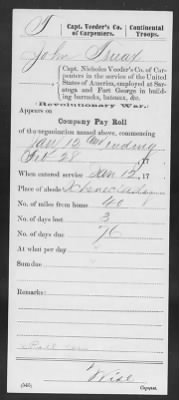 T | Capt. Veeder's Co. of Carpenters. | Continental Troops.
John Truax
Capt. Nicholas Veeder's Co. of Carpenters in the service of the United
States of America, employed at Saratoga
and Fort George in building
barracks, bateaux, &c.
(Revolutionary War.)
Appears on
Company Pay Roll
of the organization named above, commencing
Jan 12 and ending
Feb 28, 17
When entered service Jan 12, 17
Place of abode Schenectady
No. of miles from home 40
No. of days lost 3
No. of days due 76
At what per day
Sum due
Remarks:
Wise
(545) Copyist.